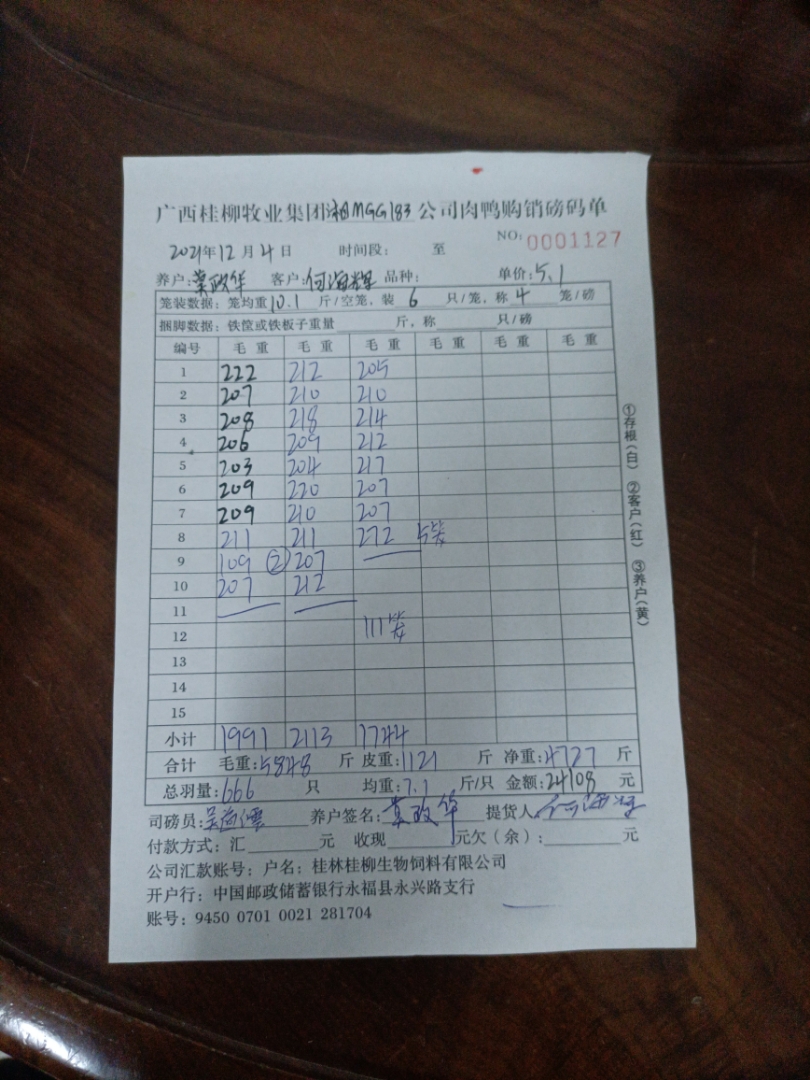 广西桂柳牧业集团湘MGG183公司肉鸭购销磅码单
NO：0001127
2021年12月4日 时间段： 至
养户： 政华 客户：何海辉 品种： 单价：5.1
笼装数据：笼均重10.1斤/空笼，装6只/笼，称4笼/磅
捆脚数据：铁筐或铁板子重量 斤，称 只/磅
编号 毛重 毛重 毛重 毛重 毛重 毛重
1 222 212 205
2 207 210 210
3 208 218 214
4 206 209 212
5 203 204 217
6 209 220 207
7 209 210 207
8 211 211 272 5笼
9 109 ② 207
10 207 212
11
12 111笼
13
14
15
小计 1991 2113 1744
合计 毛重：5848斤 皮重：1121斤 净重：4727斤
总羽量：666只 均重：7.1斤/只 金额：24108元
司磅员： 养户签名： 政华 提货人
付款方式：汇 元 收现 元欠（余）： 元
公司汇款账号：户名：桂林桂柳生物饲料有限公司
开户行：中国邮政储蓄银行永福县永兴路支行
账号：9450 0701 0021 281704
①存根（白） ②客户（红） ③养户（黄）